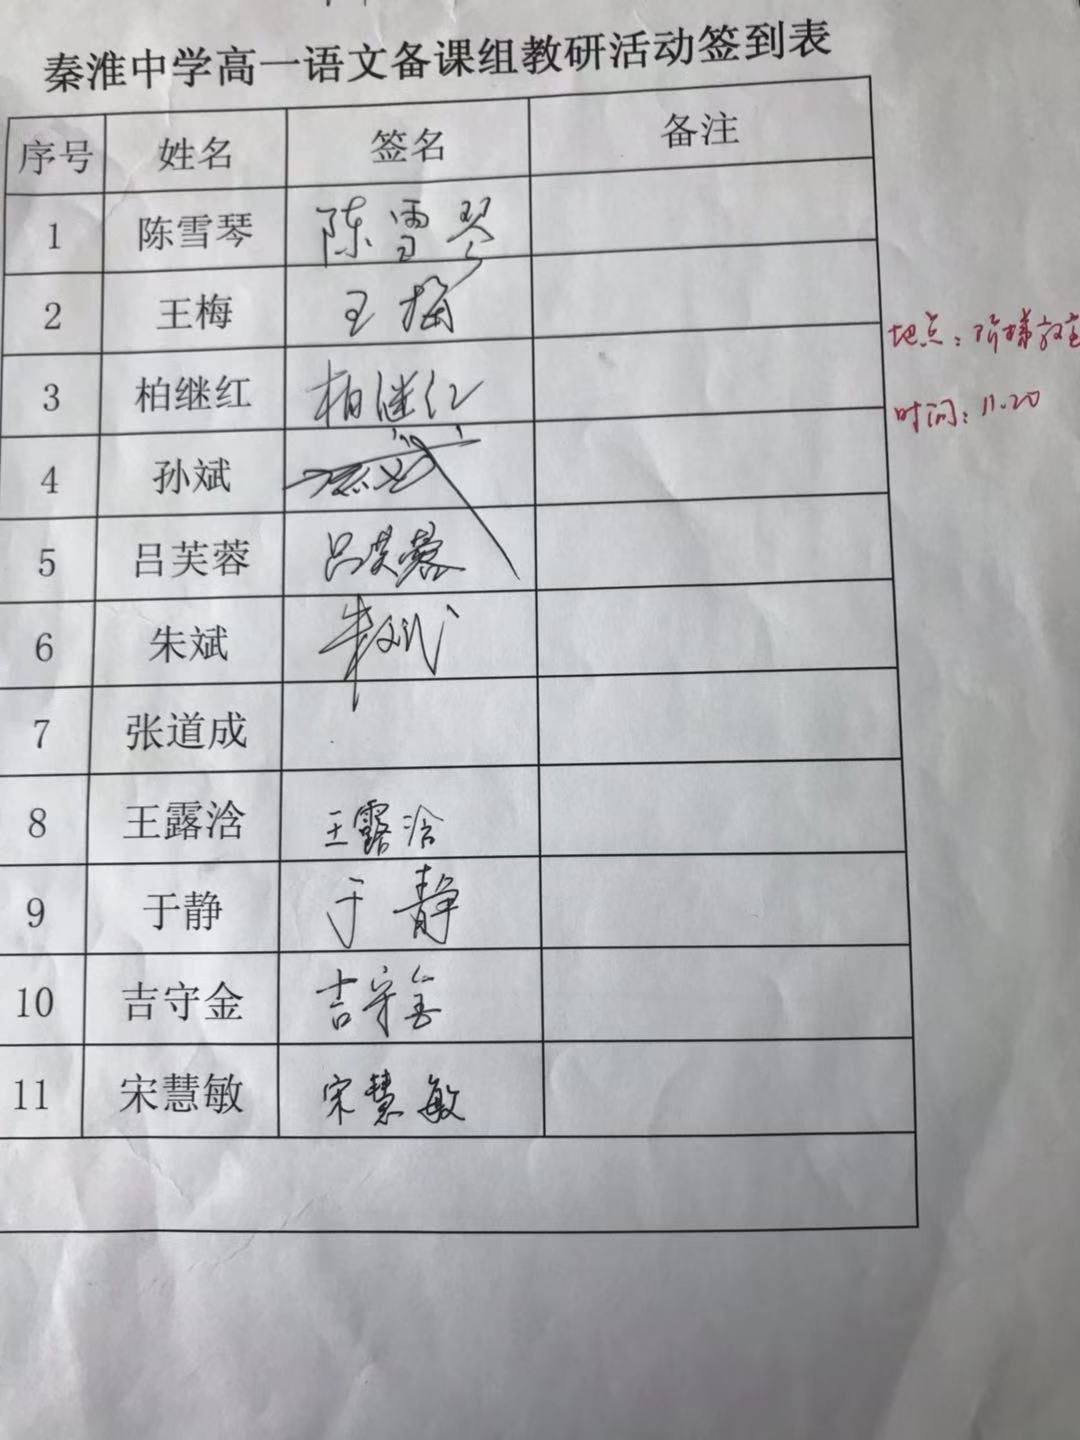 秦淮中学高一语文备课组教研活动签到表
序号 姓名 签名 备注
1 陈雪琴 陈雪琴
2 王梅 王梅
地点：阶梯教室
3 柏继红 柏继红
时间：11.20
4 孙斌
5 吕芙蓉 吕芙蓉
6 朱斌 朱斌
7 张道成
8 王露浛 王露浛
9 于静 于静
10 吉守金 吉守金
11 宋慧敏 宋慧敏